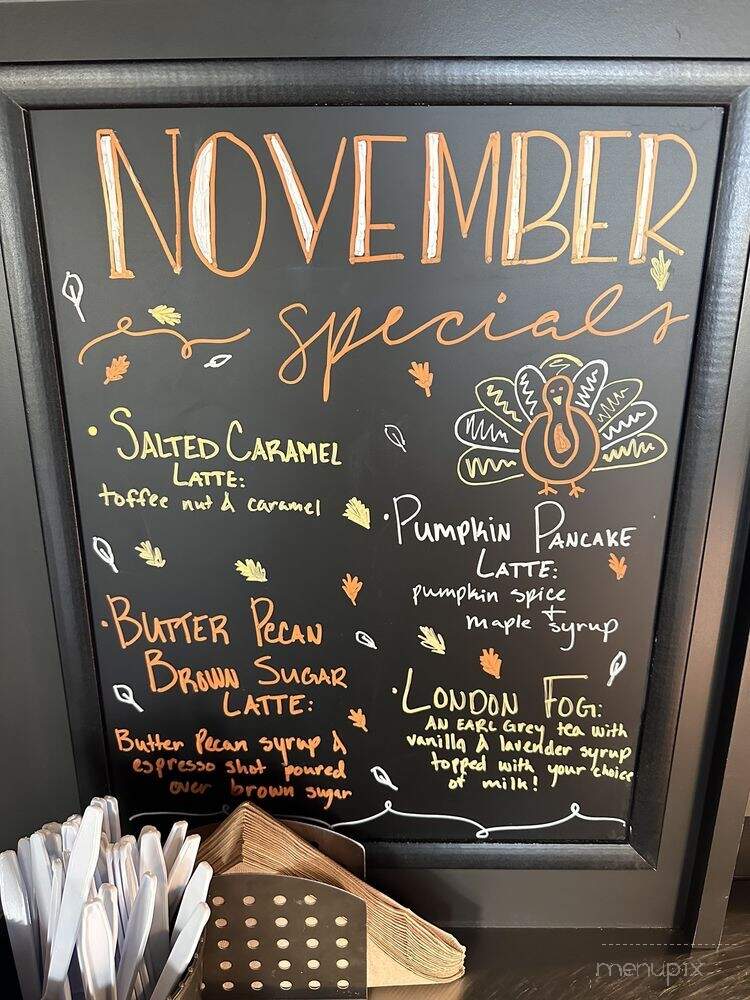 NOVEMBER
specials
• SALTED CARAMEL
LATTE:
toffee nut & caramel
• PUMPKIN PANCAKE
LATTE:
pumpkin spice
+
maple syrup
• BUTTER PECAN
BROWN SUGAR
LATTE:
Butter Pecan syrup &
espresso shot poured
over brown sugar
• LONDON FOG:
AN EARL Grey tea with
vanilla & lavender syrup
topped with your choice
of milk!
menupix